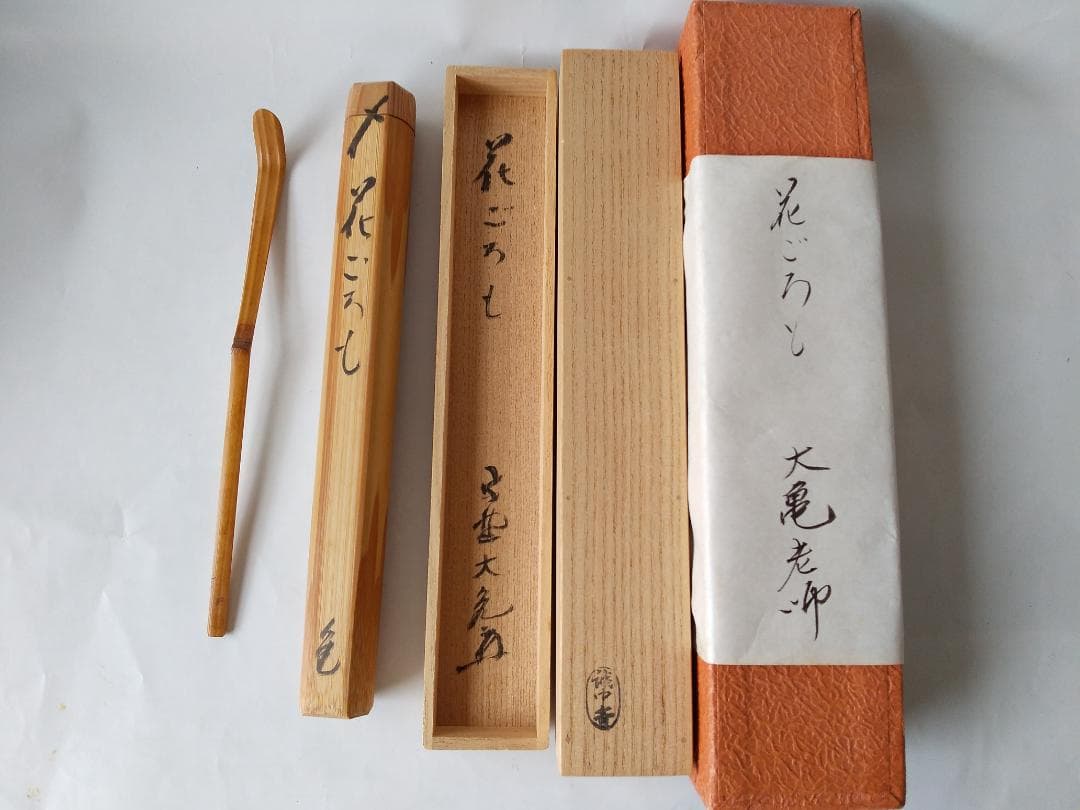 花ごろも
大亀老師
花ごろも
大亀
〆
花ごろも
亀